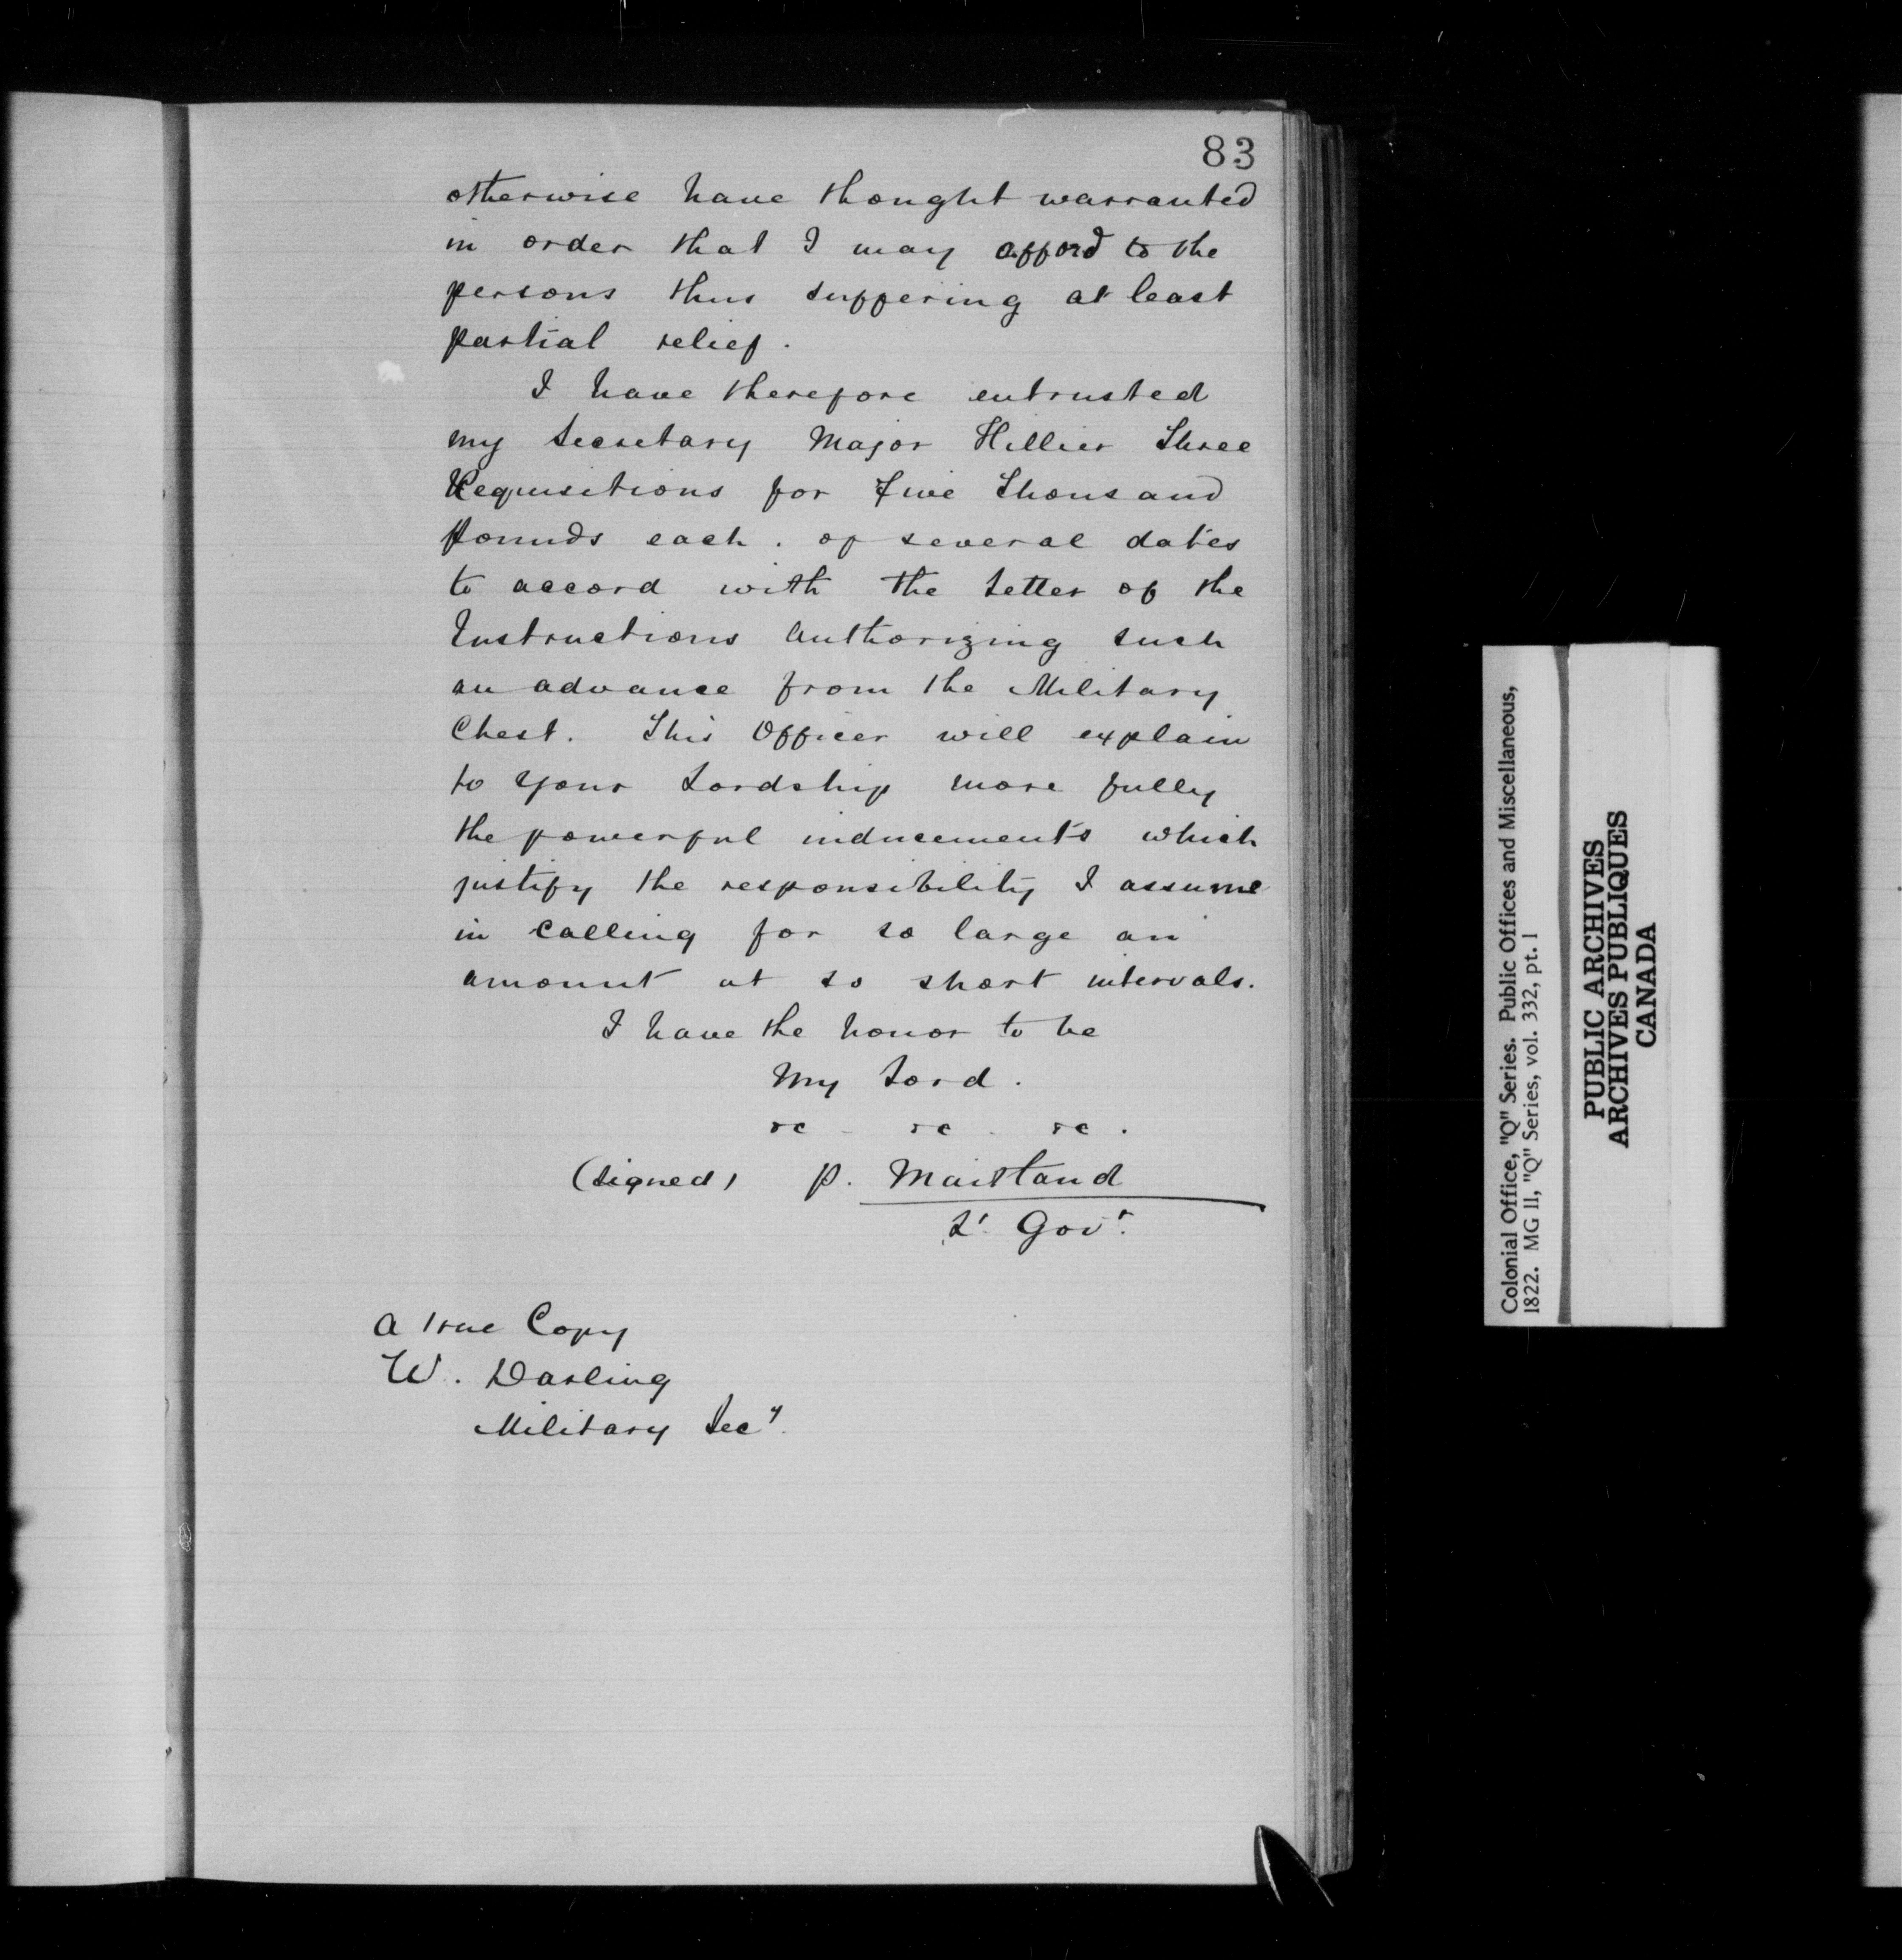 83
otherwise have thought warranted
in order that I may afford to the
persons thus suffering at least
partial relief.
I have therefore entrusted
my Secretary Major Hillier Three
Requisitions for Five Thousand
Pounds each. of several dates
to accord with the Letter of the
Instructions Authorizing such
an advance from the Military
Chest. This Officer will explain
to Your Lordship more fully
the powerful inducements which
justify the responsibility I assume
in calling for so large an
amount at so short intervals.
I have the honor to be
My Lord.
&c - &c - &c.
(Signed) P. Maitland
Lt. Govr.
A true Copy
W. Darling
Military Secy.
Colonial Office, "Q" Series. Public Offices and Miscellaneous,
1822. MG 11, "Q" Series, vol. 332, pt. 1
PUBLIC ARCHIVES
ARCHIVES PUBLIQUES
CANADA